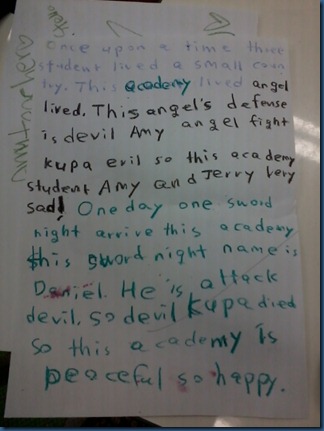 Hello
Once upon a time three
student lived a small coun
try. This academy lived angel
lived. This angel's defense
is devil Amy angel fight
kupa evil so this academy
student Amy and Jerry very
sad! One day one sword
night arrive this academy
this sword night name is
Daniel. He is attack
devil. so devil kupa died
so this academy is
peaceful so happy.